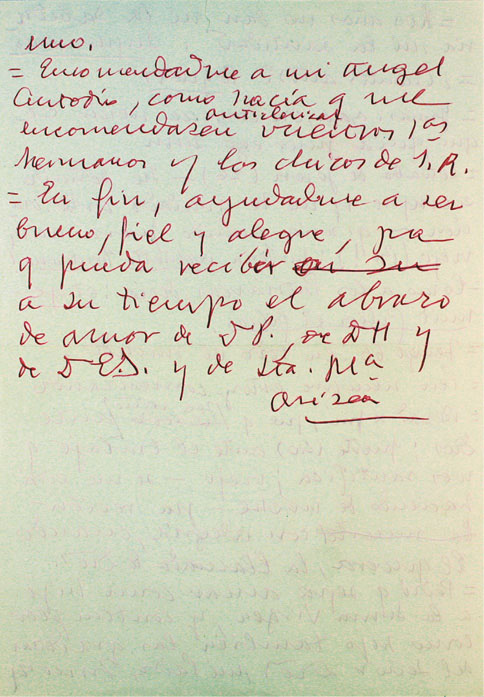 uno.
= Encomendadme a mi ángel
Custodio, como hacía q me
anticlerical
encomendasen vuestros
hermanos y los chicos de S. R.
= En fin, ayudadme a ser
bueno, fiel y alegre, pa
q pueda recibir en su
a su tiempo el abrazo
de amor de D P., de D H y
de D E.S. y de Sta. Mª